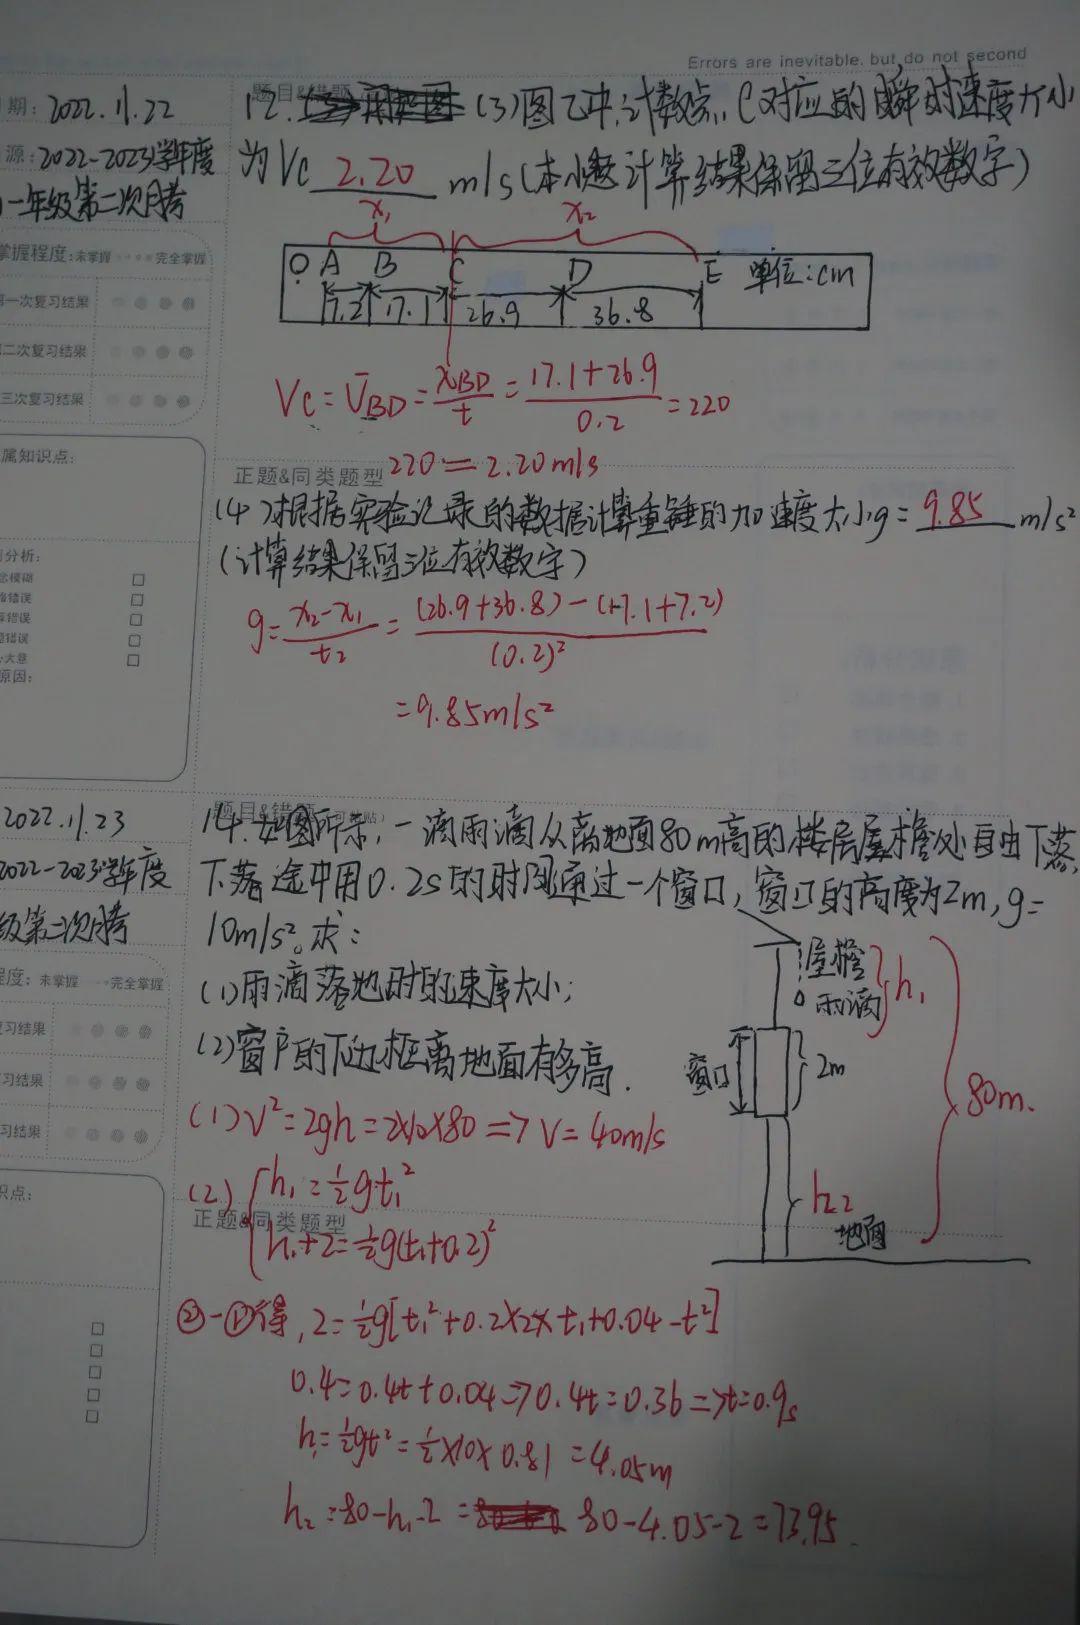 Errors are inevitable. but do not second
期: 2022.11.22
源: 2022-2023学年度
一年级第二次月考
掌握程度: 未掌握 完全掌握
第一次复习结果
第二次复习结果
第三次复习结果
属知识点:
分析:
念模糊
错误
错误
错误
大意
原因:
题目&错题
12. (3)图乙中,计数点C对应的瞬时速度大小
为Vc 2.20 m/s(本小题计算结果保留三位有效数字)
x₁ x₂
O A B C D E 单位:cm
7.2 17.1 26.9 36.8
Vc=V̄BD=xBD/t=(17.1+26.9)/0.2=220
220=2.20m/s
正题&同类题型
(4)根据实验记录的数据计算重锤的加速度大小g= 9.85 m/s²
(计算结果保留三位有效数字)
g=(x₂-x₁)/t₂=((26.9+36.8)-(17.1+7.2))/(0.2)²
=9.85m/s²
2022.11.23
2022-2023学年度
级第二次月考
程度: 未掌握 完全掌握
复习结果
习结果
习结果
识点:
题目&错题(可剪贴)
14.如图所示,一滴雨滴从离地面80m高的楼房屋檐处自由下落,
下落途中用0.2s的时间通过一个窗口,窗口的高度为2m,g=
10m/s²。求:
(1)雨滴落地时的速度大小;
(2)窗户的下边框离地面有多高.
屋檐
雨滴
h₁
窗口
2m
80m.
h₂
地面
(1)V²=2gh=2×10×80⇒V=40m/s
(2) h₁=½gt₁²
正题&同类题型
h₁+2=½g(t₁+0.2)²
②-①得,2=½g[t₁²+0.2×2×t₁+0.04-t²]
0.4=0.4t+0.04⇒0.4t=0.36⇒t=0.9s
h₁=½gt²=½×10×0.81=4.05m
h₂=80-h₁-2= 80-4.05-2=73.95.